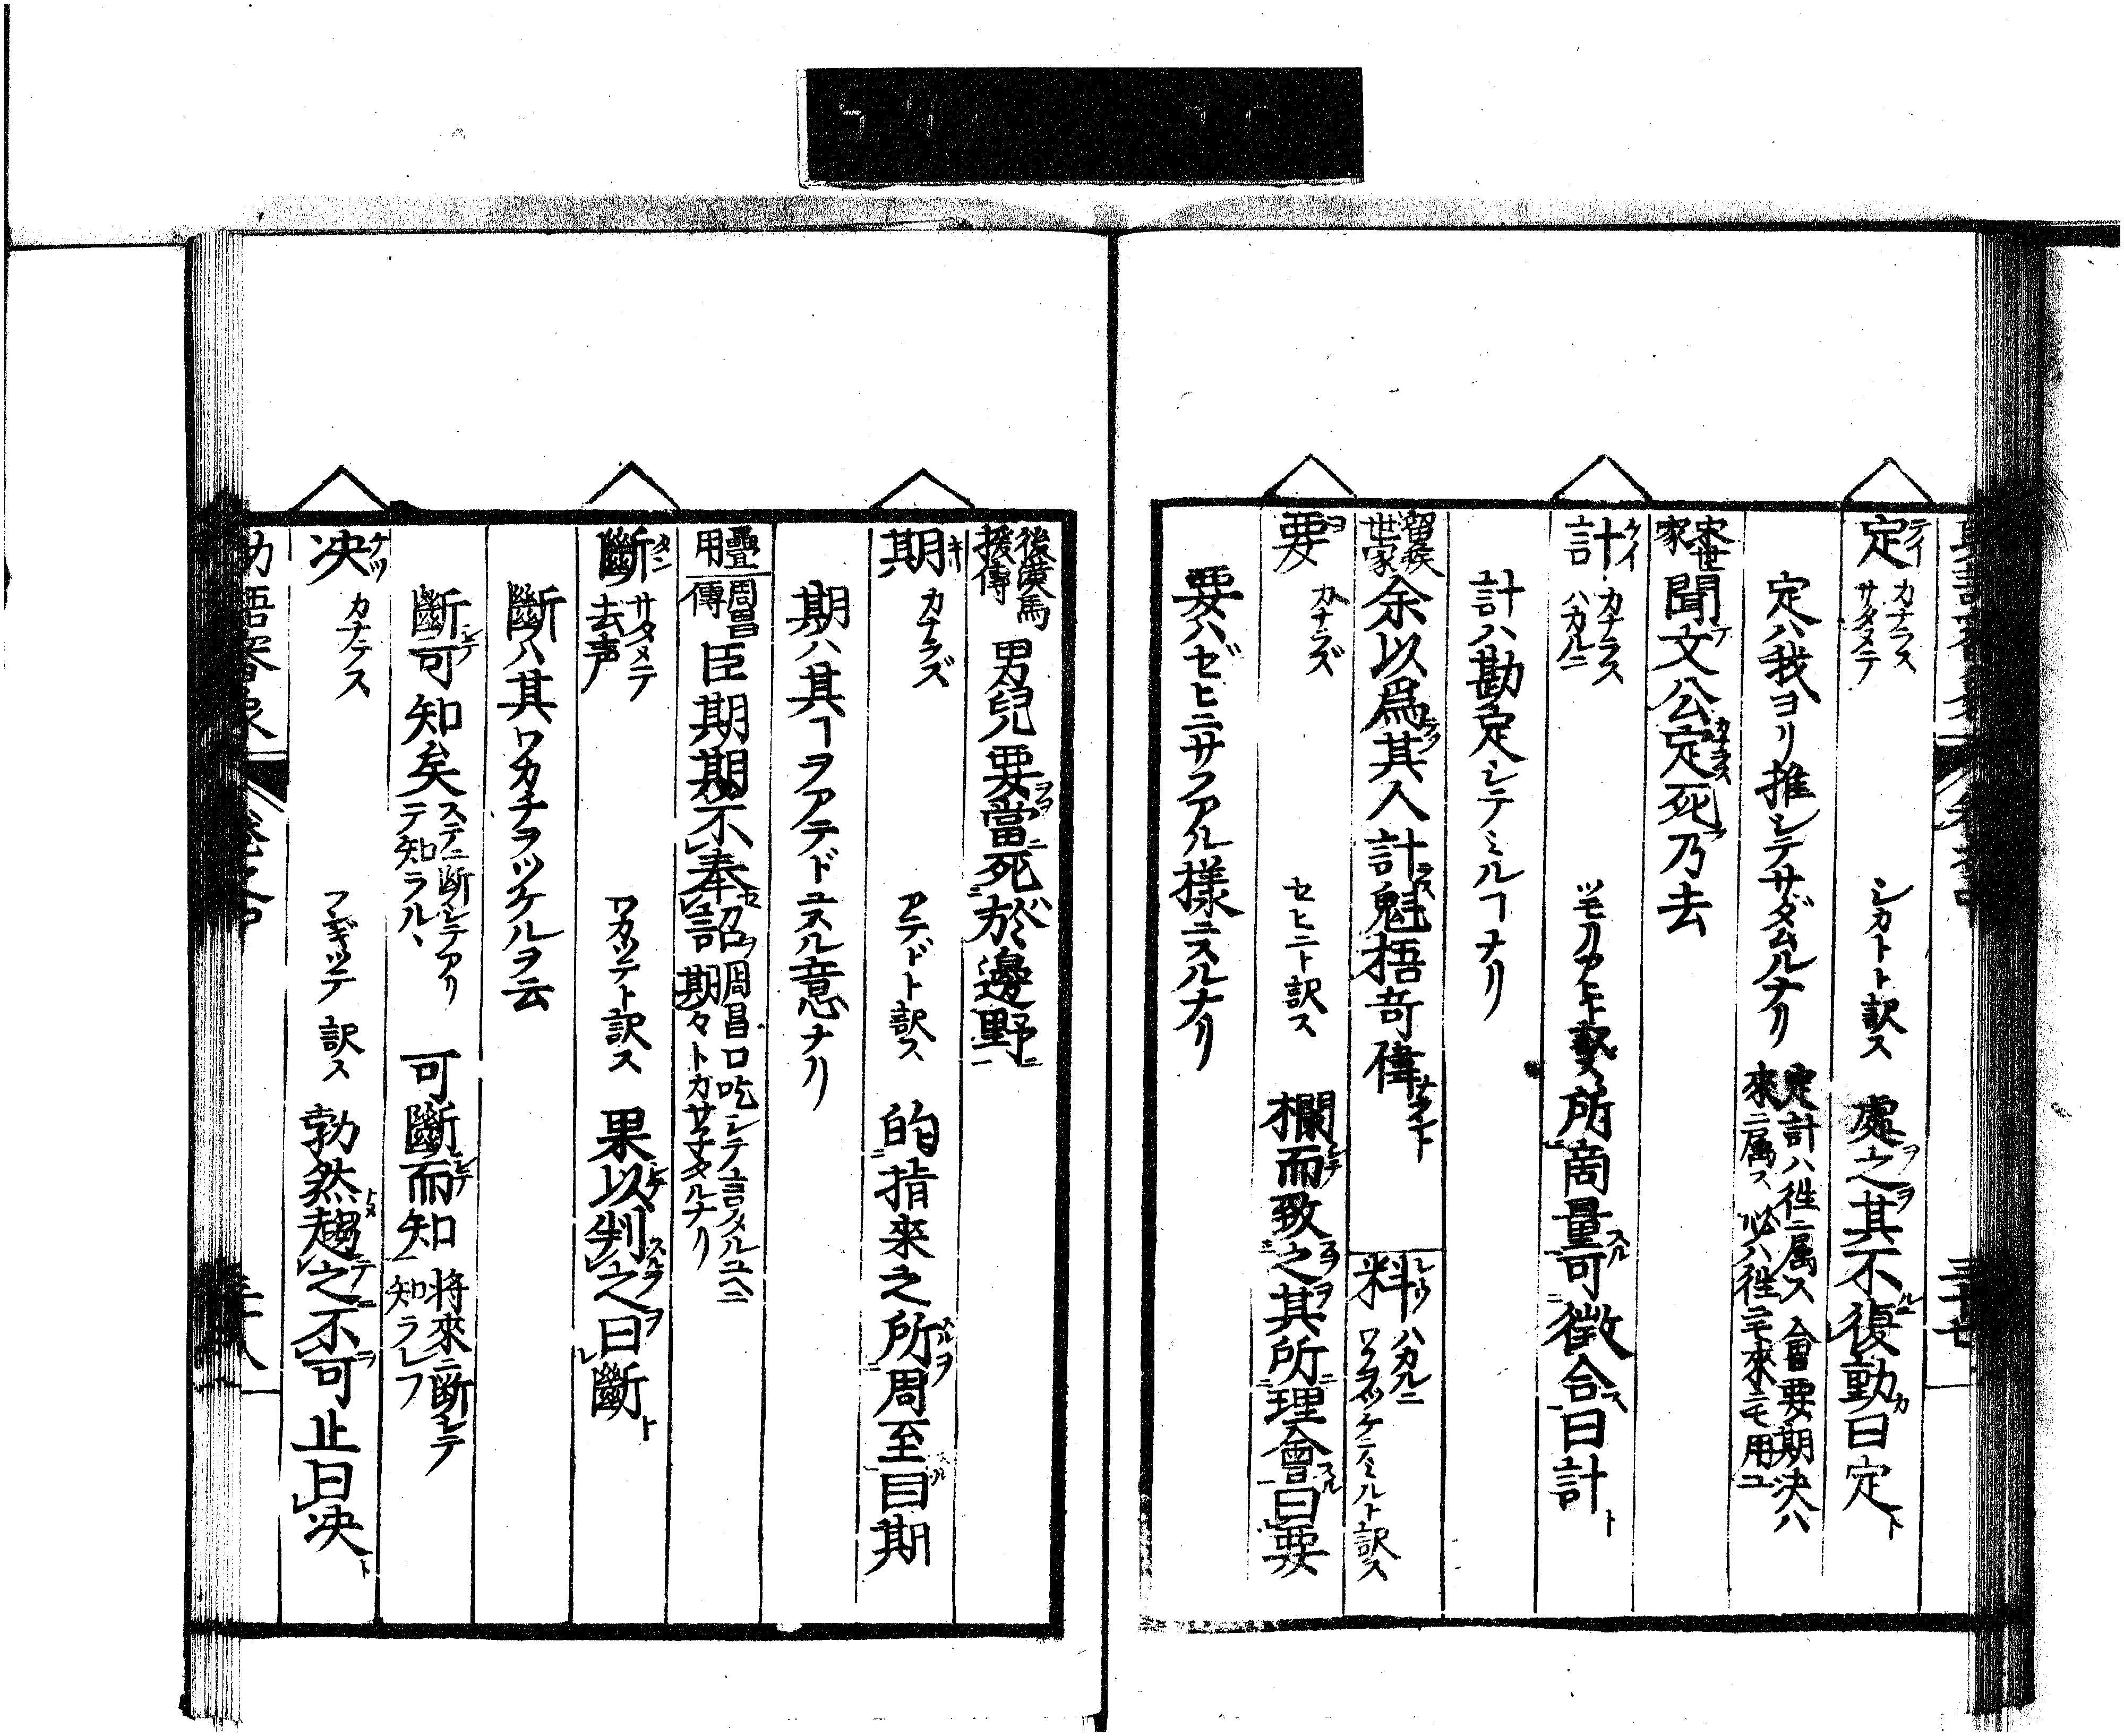 定 テイ カナラス サダメテ シカトト訳ス 處之其不復動曰定
定ハ我ヨリ推シテサダムルナリ 定計ハ徃ニ属ス会要期決ハ來ニ属ス必ハ徃ニモ來ニモ用ユ
宋世家 聞文公定死乃去
計 ケイ カナラス ハカルニ 所啇量可徴合曰計
計ハ勘定シテミルヿナリ
留矦世家 余以爲其人計魁梧奇偉 料 ハカルニ ト訳ス
要 ヨ カナラズ セヒニト訳ス 欄而致之其所理會曰要
要ハゼヒニサフアル樣ニスルナリ
後漢馬援傳 男兒要當死於邊野
期 キ カナラズ アテドト訳ス 的指来之所周至曰期
期ハ其ヿヲアテドニスル意ナリ
疊用 周昌傳 臣期期不奉詔 周昌口吃シテ言タルユヘニ期々トカサナタルナリ
斷 タン サタメテ 去声 ワカツテト訳ス 果以判之曰斷
斷ハ其ワカチヲツケルヲ云
斷可知矣 ステニ断シテアリテ知ラル、 可斷而知 将來ニ断シテ知ラレフ
決 ケツ カナラス フンギツテ訳ス 勃然趨之不可止曰決